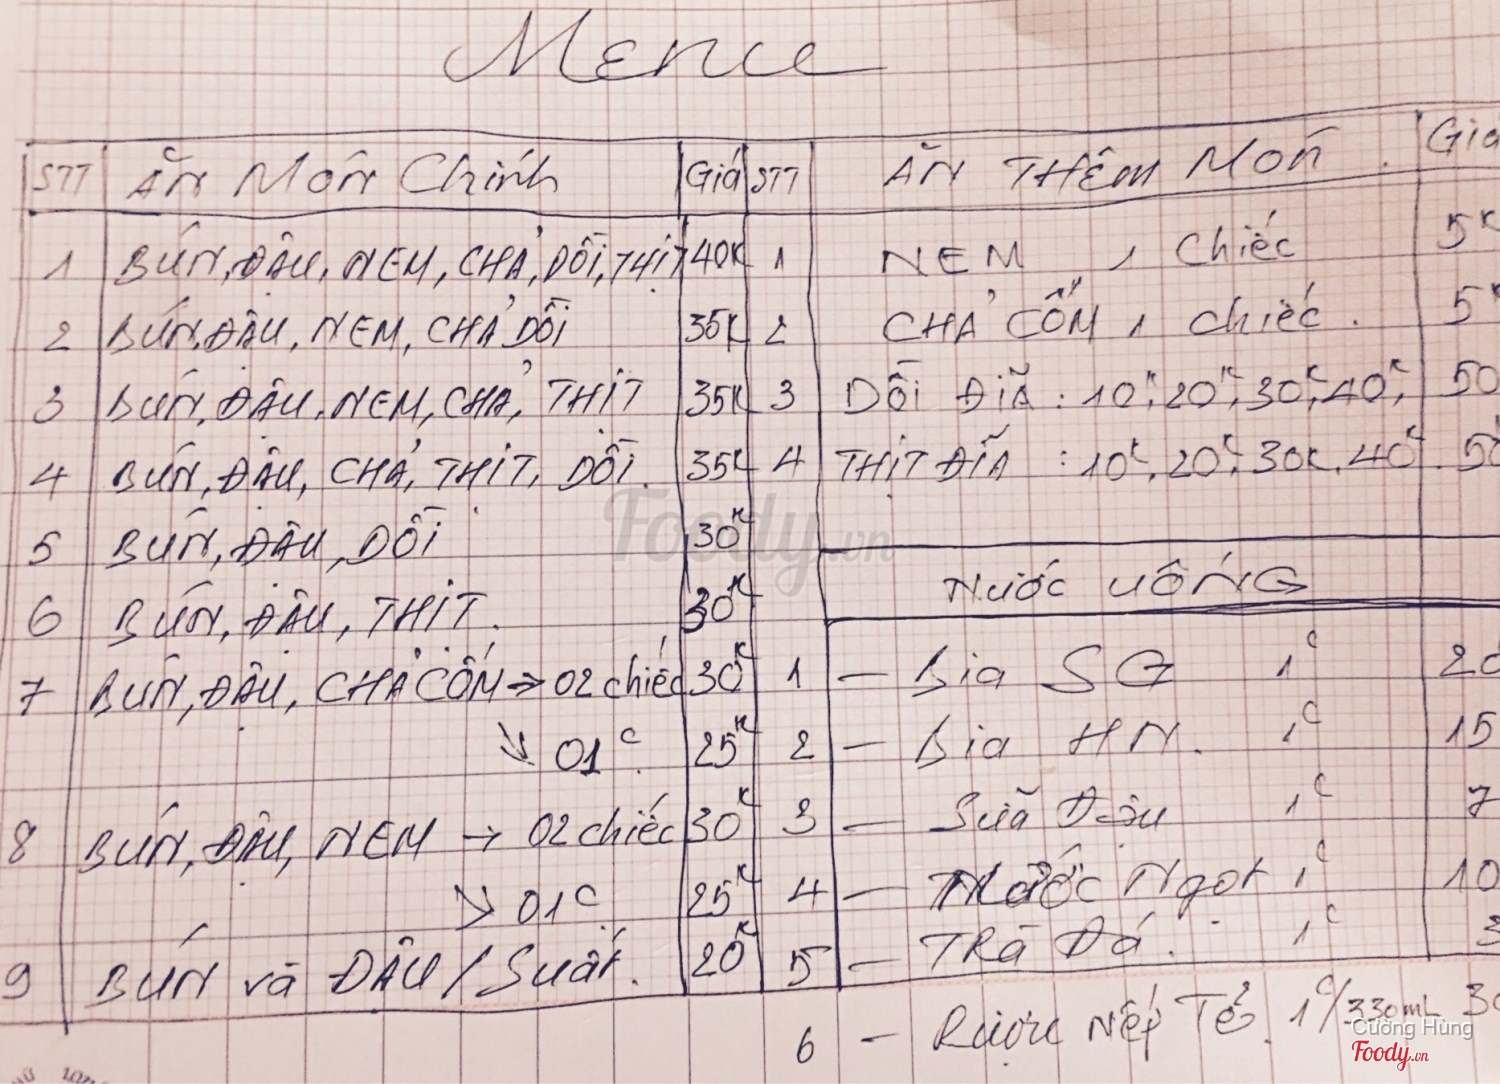 Menu
STT ĂN MÓN Chính Giá
1 BÚN, ĐẬU, NEM, CHẢ, DỒI, THỊT 40K
2 BÚN, ĐẬU, NEM, CHẢ DỒI 35K
3 BÚN, ĐẬU, NEM, CHẢ, THỊT 35K
4 BÚN, ĐẬU, CHẢ, THỊT, DỒI. 35K
5 BÚN, ĐẬU, DỒI 30K
6 BÚN, ĐẬU, THỊT. 30K
7 BÚN, ĐẬU, CHẢ CỐM → 02 chiếc 30K
↘ 01C 25K
8 BÚN, ĐẬU, NEM → 02 chiếc 30K
↘ 01C 25K
9 BÚN và ĐẬU / Suất. 20K
STT ĂN THÊM MÓN. Giá
1 NEM 1 Chiếc 5K
2 CHẢ CỐM 1 chiếc. 5K
3 DỒI ĐĨA: 10K, 20K, 30K, 40K, 50
4 THỊT ĐĨA: 10K, 20K, 30K, 40K. 50
NƯỚC UỐNG
1 – Bia SG 1C 20
2 – Bia HN. 1C 15
3 – Sữa Đậu 1C 7
4 – Nước Ngọt 1C 10
5 – TRÀ Đá. 1C 3
6 – Rượu Nếp Tẻ. 1C/330mL 30
Foody.vn
Cường Hùng
Foody.vn